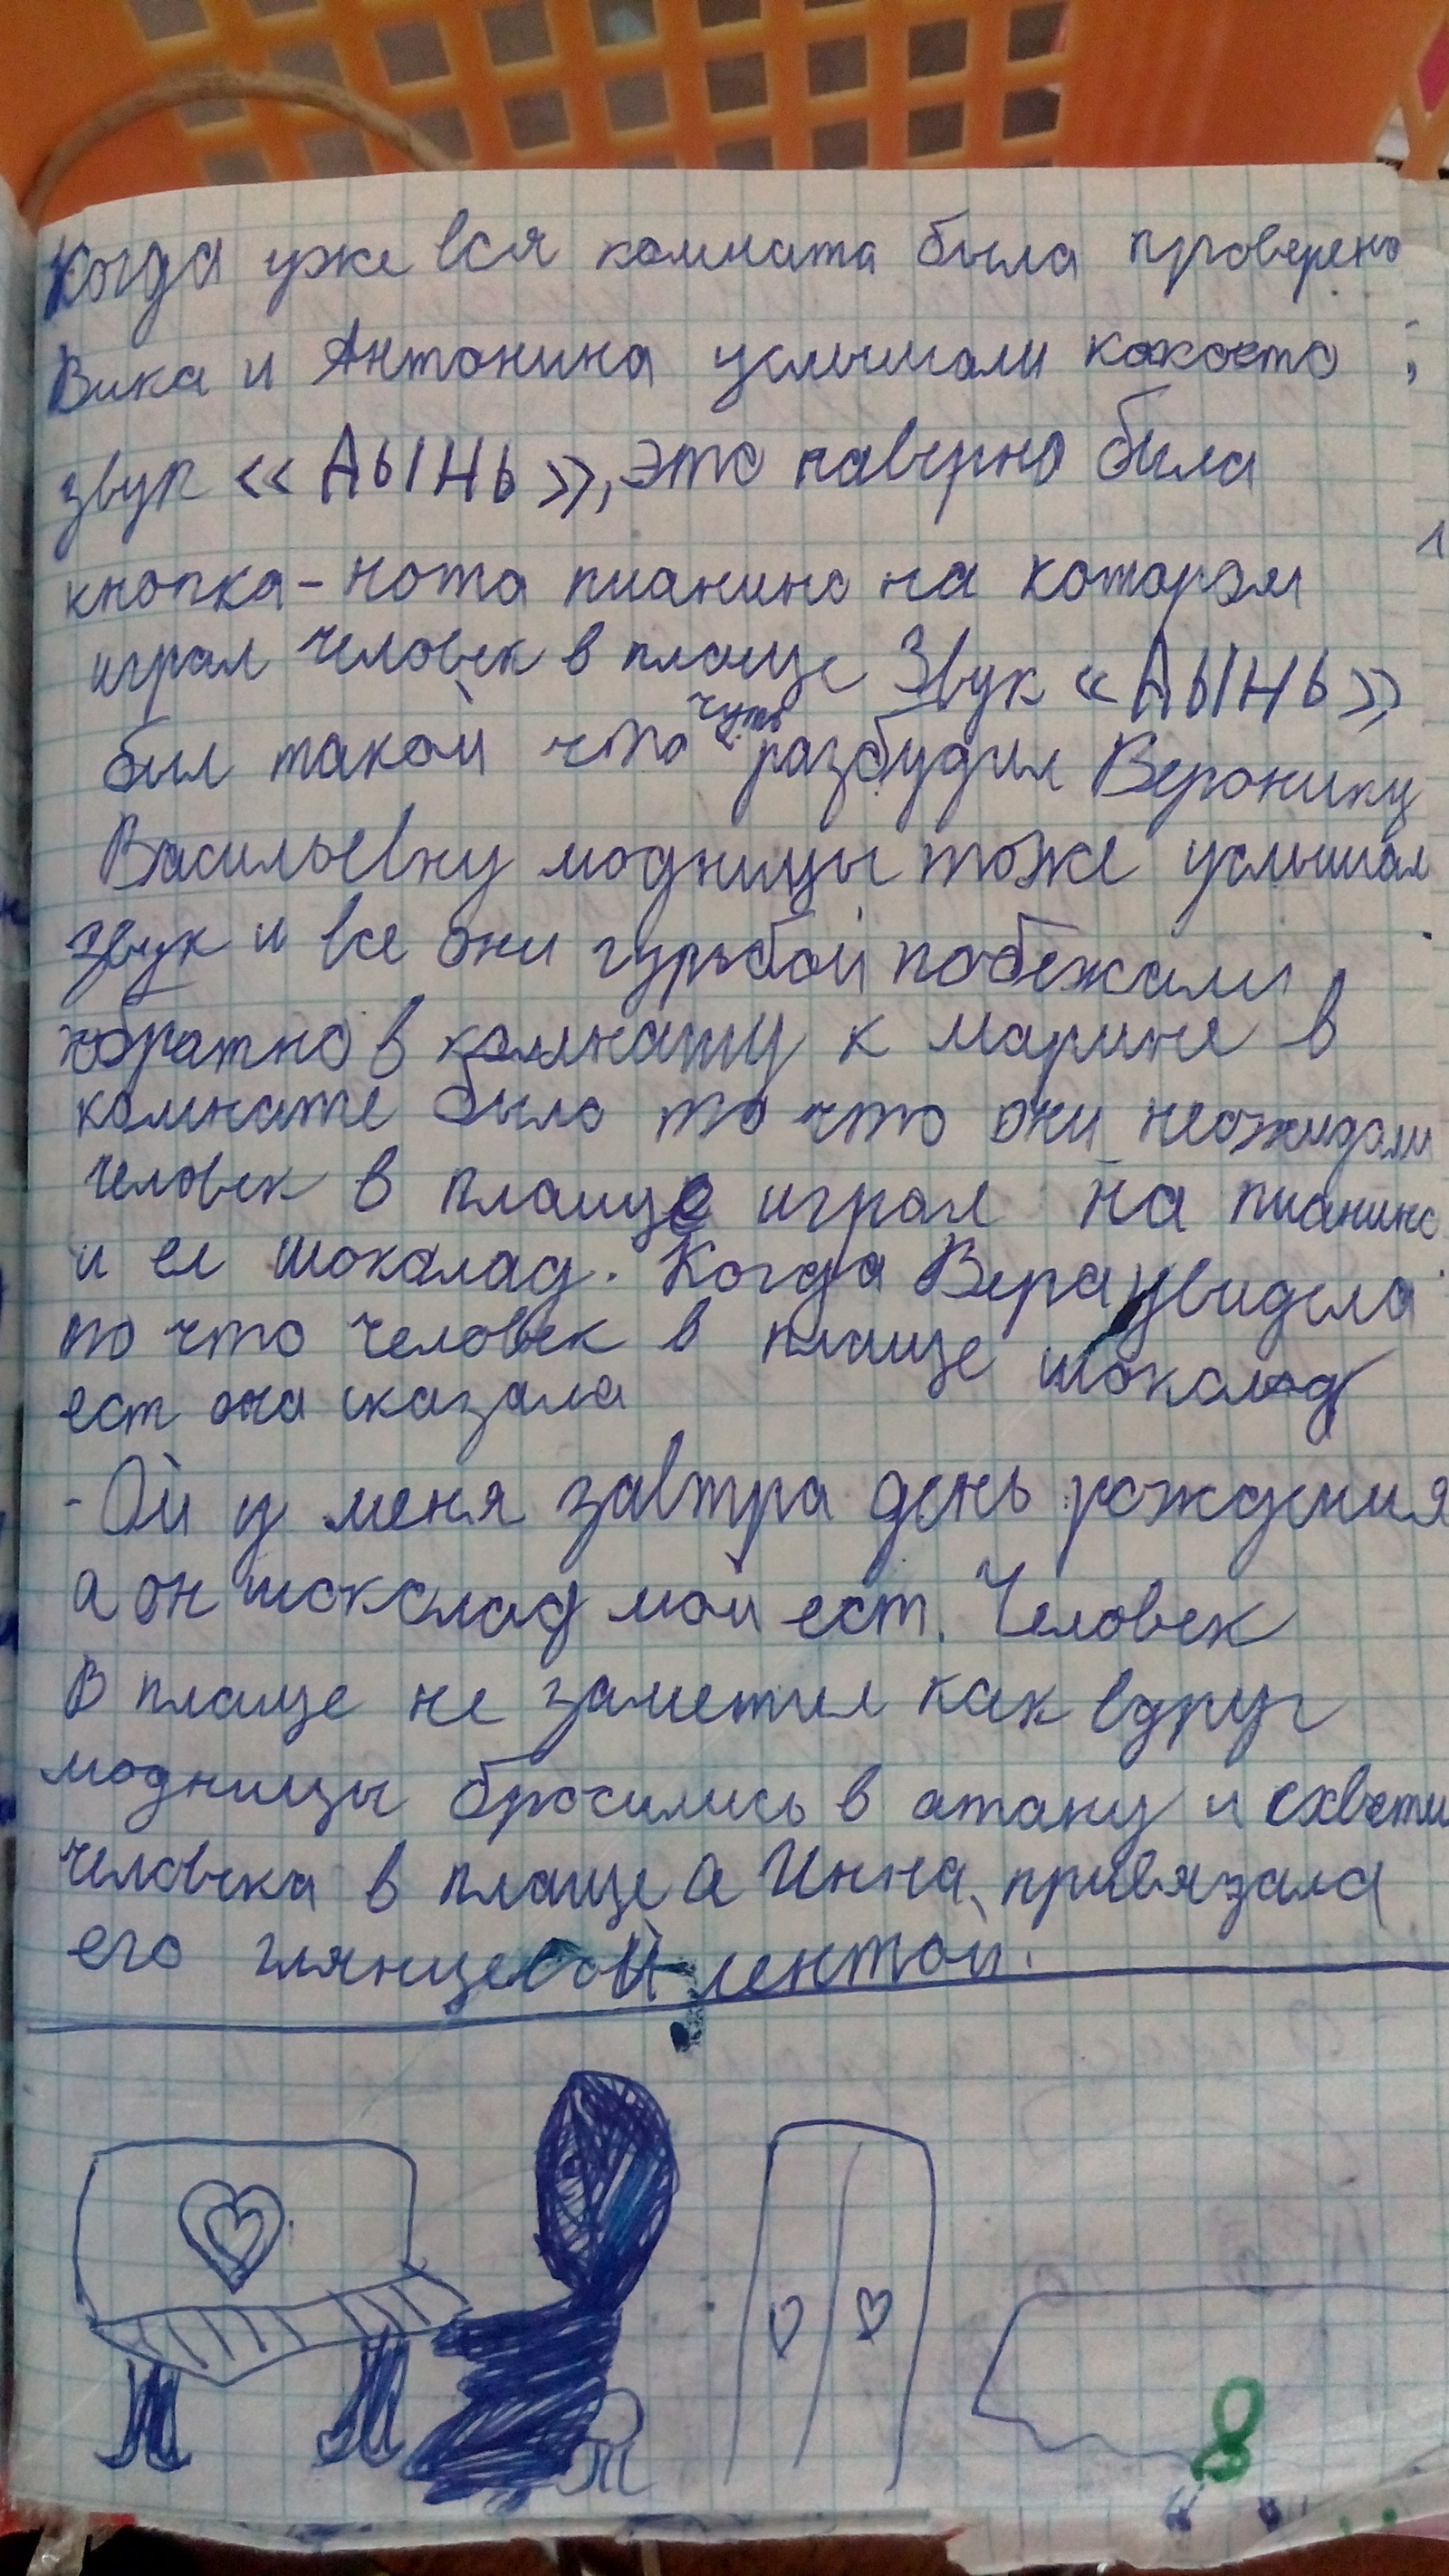 Когда уже вся комната была проверено
Вика и Антонина услышали какоето
звук «АЫНЬ», это наверно была
кнопка-нота пианино на котором
играл человек в плаще Звук «АЫНЬ»
был такой что чуть разбудил Веронику
Васильевну модницы тоже услышал
звук и все они гурьбой побежали
обратно в комнату к марине в
комнате было то что они неожидали
человек в плаще играл на пианино
и ел шоколад. Когда Вера увидела
то что человек в плаще шоколад
ест она сказала
-Ой у меня завтра день рождения
а он шоколад мой ест. Человек
в плаще не заметил как вдруг
модницы бросились в атаку и схвати
человека в плаще а Инна привязала
его глянцевой лентой.
8